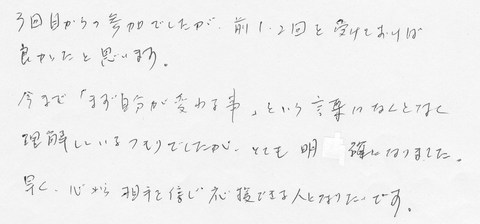 3回目からの参加でしたが、前1.2回を受けておけば
良かったと思います。
今まで「まず自分が変わる事」という言葉になんとなく
理解しているつもりでしたが、とても明確になりました。
早く、心から相手を信じ応援できる人となりたいです。